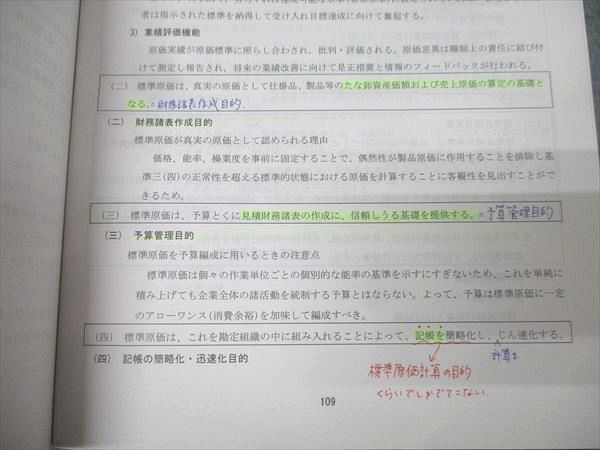 者は指示された標準を納得して受け入れ目標達成に向けて奮起する。
3) 業績評価機能
原価実績が原価標準に照らし合わされ、批判・評価される。原価差異は職制上の責任に結び付
けて測定し報告され、将来の業績改善に向けて是正措置と情報のフィードバックが行われる。
(二) 標準原価は、真実の原価として仕掛品、製品等のたな卸資産価額および売上原価の算定の基礎と
なる。=財務諸表作成目的
(二) 財務諸表作成目的
標準原価が真実の原価として認められる理由
価格、能率、操業度を事前に固定することで、偶然性が製品原価に作用することを排除し基
準三(四)の正常性を超える標準的状態における原価を計算することに客観性を見出すことがで
きるため。
(三) 標準原価は、予算とくに見積財務諸表の作成に、信頼しうる基礎を提供する。=予算管理目的
(三) 予算管理目的
標準原価を予算編成に用いるときの注意点
標準原価は個々の作業単位ごとの個別的な能率の基準を示すにすぎないため、これを単純に
積み上げても企業全体の諸活動を統制する予算とはならない。よって、予算は標準原価に一定
のアローワンス(消費余裕)を加味して編成すべき。
(四) 標準原価は、これを勘定組織の中に組み入れることによって、記帳を簡略化し、じん速化する。
計算を
(四) 記帳の簡略化・迅速化目的
標準原価計算の目的
くらいでしかでてこない。
109